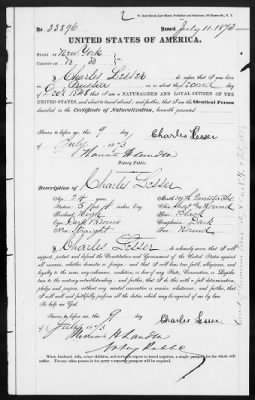 2
No. 33896 Issued July 11. 1873
UNITED STATES OF AMERICA.
STATE OF New York
COUNTY OF
I, Charles Lesser do swear that I was born
in Prussia on the second day
of Dec 1848; that I am a NATURALIZED AND LOYAL CITIZEN OF THE
UNITED STATES, and about to travel abroad; and further, that I am the Identical Person
described in the Certificate of Naturalization, herewith presented.
Sworn to before me, this 9 day Charles Lesser
of July 1873
Notary Public.
Description of Charles Lesser
Age, 24 years
Stature, 5 feet
Forehead, High
Eyes, Dark Brown
Nose, Straight
Chin,
Hair, Black
Complexion, Dark
Face, Round
I, Charles Lesser, do solemnly swear that I will
support, protect and defend the Constitution and Government of the United States against
all enemies, whether domestic or foreign; and that I will bear true faith, allegiance and
loyalty to the same, any ordinance, resolution, or law of any State, Convention, or Legisla-
ture to the contrary notwithstanding; and further, that I do this with a full determination,
pledge and purpose, without any mental reservation or evasion whatsoever; and further, that
I will well and faithfully perform all the duties which may be required of me by law.
So help me God.
Sworn to before me, this 9 day Charles Lesser
of July 1873
Notary Public